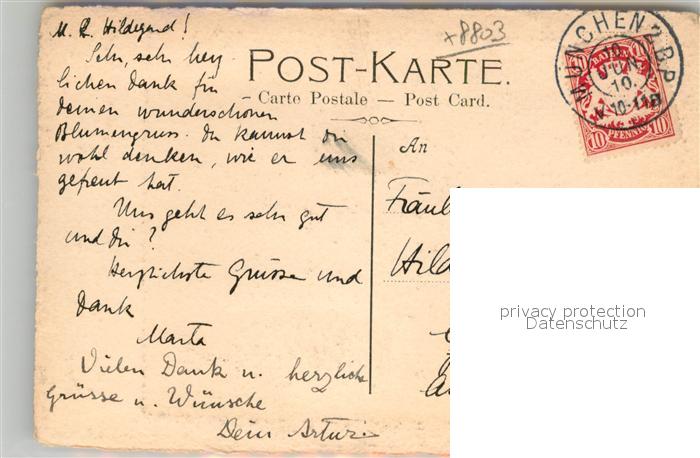 M. l. Hildegard!
Sehr, sehr herz
lichen Dank für
deinen wunderschönen
Blumengruss. Du kannst dir
wohl denken, wie er uns
gefreut hat.
Uns geht es sehr gut
und dir?
Herzlichste Grüsse und
Dank
Marta
Vielen Dank u. herzliche
Grüsse u. Wünsche
Dein Artur
+8803
POST-KARTE.
Carte Postale — Post Card.
An
Fräul
Hild
MÜNCHEN 2 B.P.
JUN.
10.
BAYERN
10 PFENNIG 10
privacy protection
Datenschutz